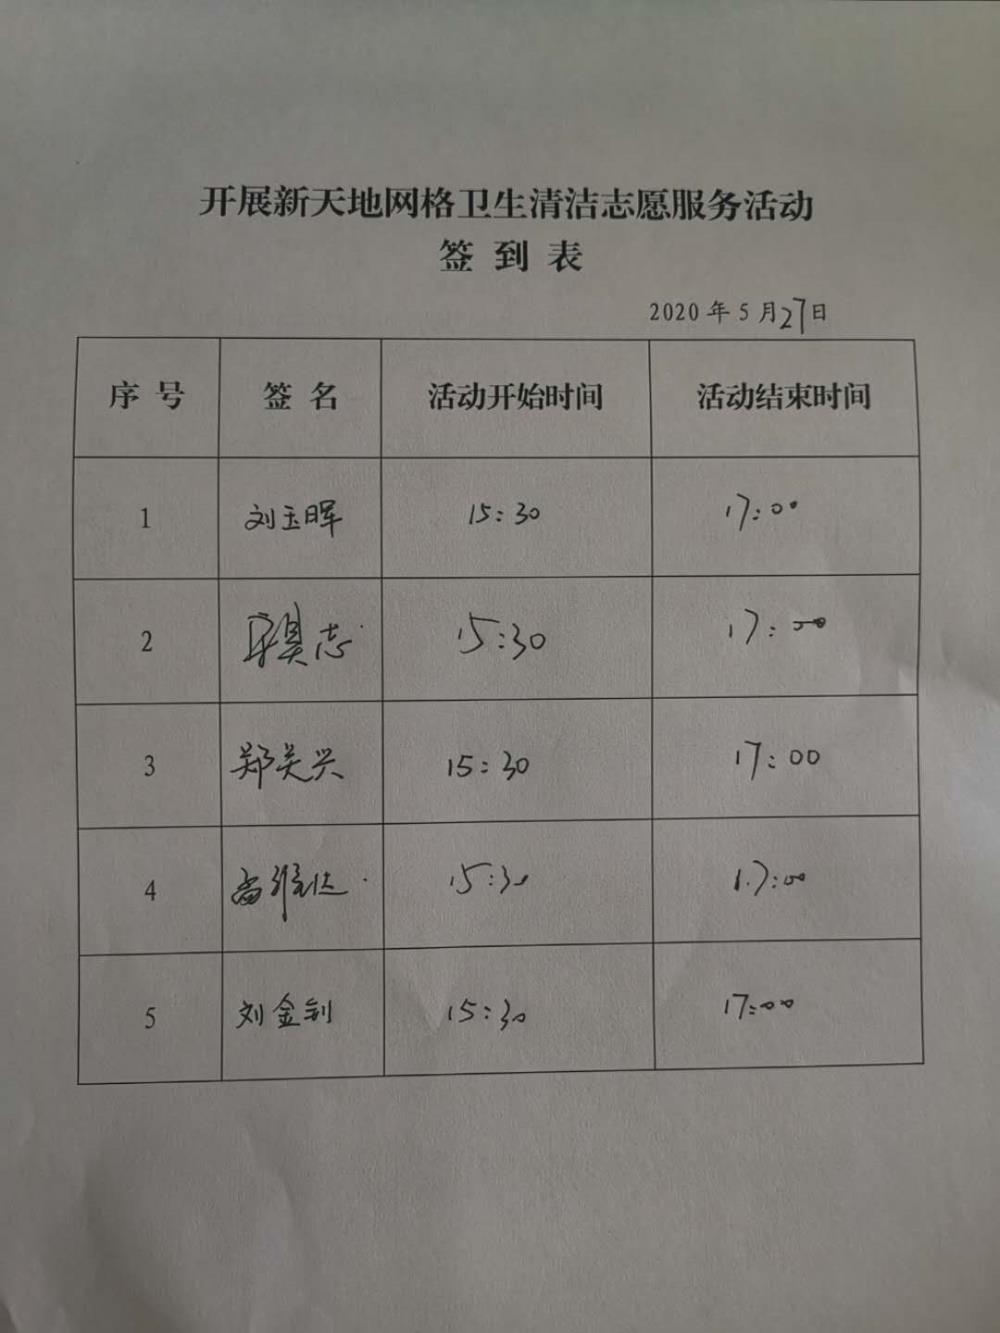 开展新天地网格卫生清洁志愿服务活动
签到表
2020年5月27日
序号 签名 活动开始时间 活动结束时间
1 刘玉晖 15:30 17:00
2 志 15:30 17:00
3 郑关兴 15:30 17:00
4 15:30 17:00
5 刘金钊 15:30 17:00